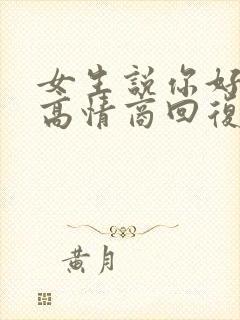 女生説你好
高情商回復
黄月